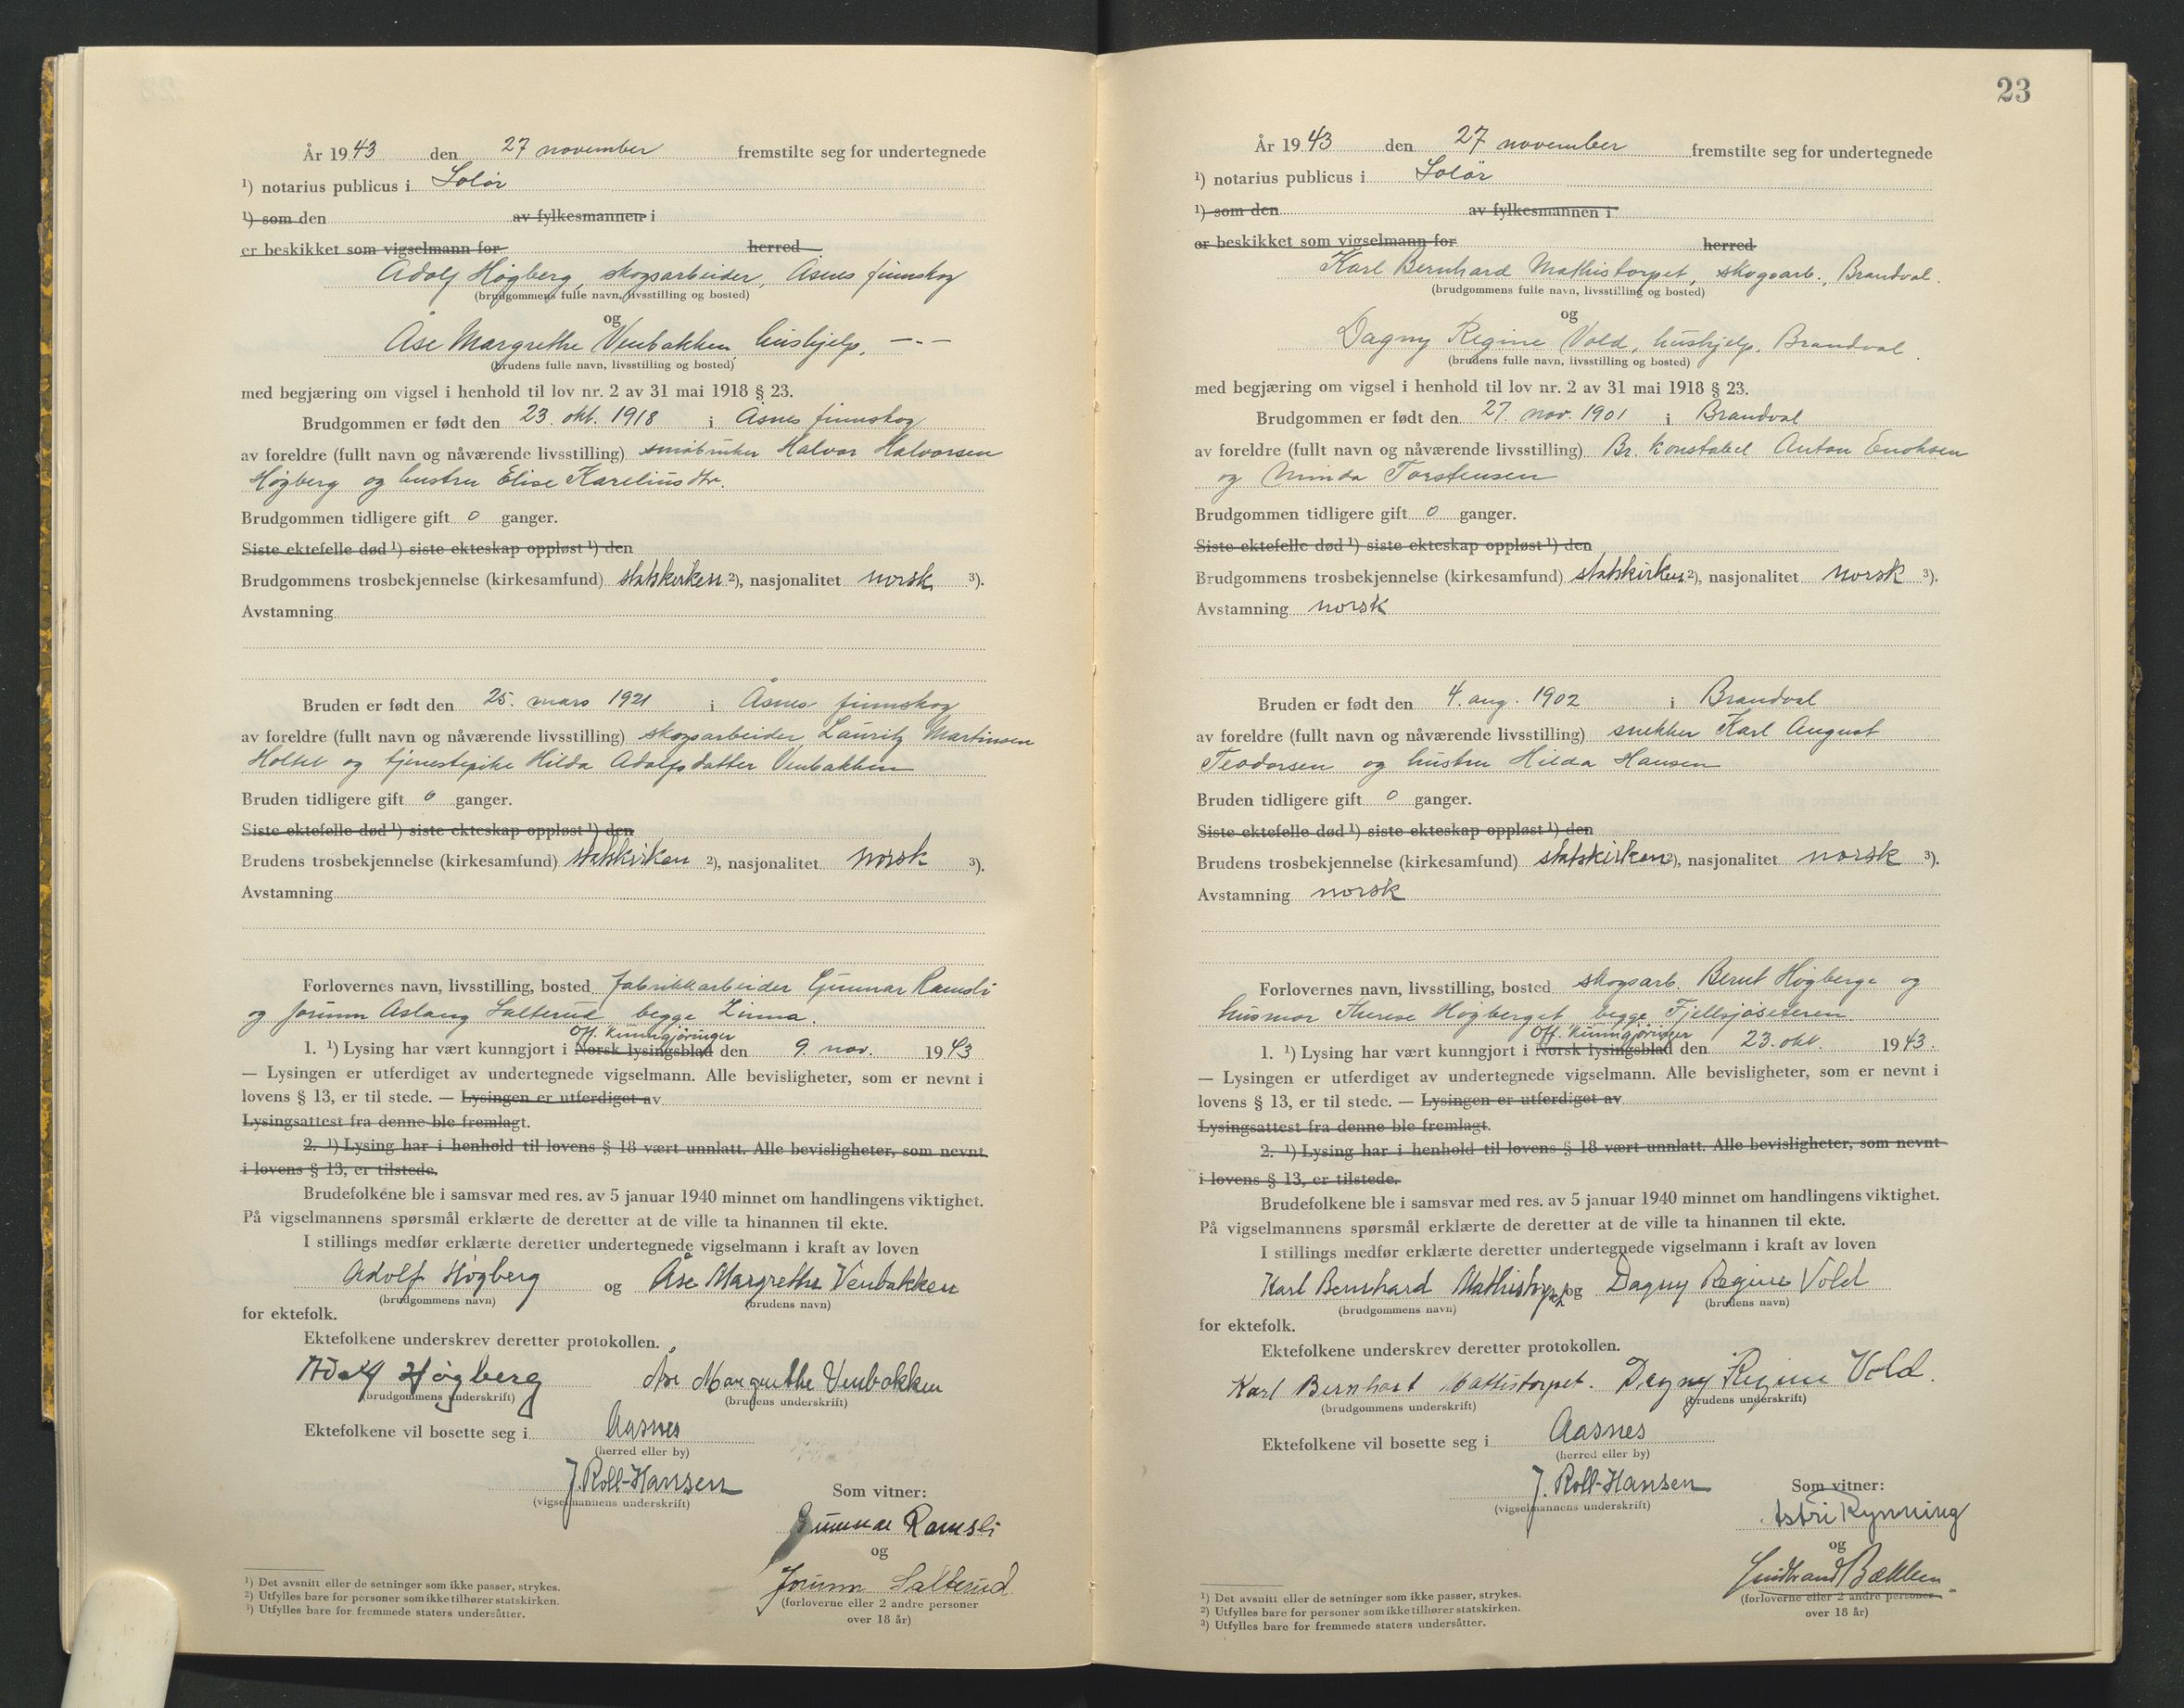 År 1943 den 27 november fremstilte seg for undertegnede
¹) notarius publicus i Solør
¹) som den av fylkesmannen i
er beskikket som vigselmann for herred
Adolf Høgberg, skogsarbeider, Åsnes finnskog
(brudgommens fulle navn, livsstilling og bosted)
og
Åse Margrethe Venbakken, hushjelp, — " —
(brudens fulle navn, livsstilling og bosted)
med begjæring om vigsel i henhold til lov nr. 2 av 31 mai 1918 § 23.
Brudgommen er født den 23. okt. 1918 i Åsnes finnskog
av foreldre (fullt navn og nåværende livsstilling) småbruker Halvor Halvorsen
Høgberg og hustru Elise Kareliusdtr.
Brudgommen tidligere gift 0 ganger.
Siste ektefelle død ¹) siste ekteskap oppløst ¹) den
Brudgommens trosbekjennelse (kirkesamfund) statskirken ²), nasjonalitet norsk ³).
Avstamning
Bruden er født den 25. mars 1921 i Åsnes finnskog
av foreldre (fullt navn og nåværende livsstilling) skogsarbeider Lauritz Martinsen
Holtet og tjenestepike Hilda Adolfsdatter Venbakken
Bruden tidligere gift 0 ganger.
Siste ektefelle død ¹) siste ekteskap oppløst ¹) den
Brudens trosbekjennelse (kirkesamfund) statskirken ²), nasjonalitet norsk ³).
Avstamning
Forlovernes navn, livsstilling, bosted fabrikkarbeider Gunnar Ramsli
og Jorunn Aslaug Salterud begge Linna.
Off. kunngjøringer
1. ¹) Lysing har vært kunngjort i Norsk lysingsblad den 9. nov. 1943
— Lysingen er utferdiget av undertegnede vigselmann. Alle bevisligheter, som er nevnt i
lovens § 13, er til stede. — Lysingen er utferdiget av
Lysingsattest fra denne ble fremlagt.
2. ¹) Lysing har i henhold til lovens § 18 vært unnlatt. Alle bevisligheter, som nevnt
i lovens § 13, er tilstede.
Brudefolkene ble i samsvar med res. av 5 januar 1940 minnet om handlingens viktighet.
På vigselmannens spørsmål erklærte de deretter at de ville ta hinannen til ekte.
I stillings medfør erklærte deretter undertegnede vigselmann i kraft av loven
Adolf Høgberg og Åse Margrethe Venbakken
(brudgommens navn) (brudens navn)
for ektefolk.
Ektefolkene underskrev deretter protokollen.
Adolf Høgberg Åse Margrethe Venbakken
(brudgommens underskrift) (brudens underskrift)
Ektefolkene vil bosette seg i Aasnes
(herred eller by)
J. Roll-Hansen
(vigselmannens underskrift)
Som vitner:
Gunnar Ramsli
og
Jorunn Salterud
(forloverne eller 2 andre personer
over 18 år)
¹) Det avsnitt eller de setninger som ikke passer, strykes.
²) Utfylles bare for personer som ikke tilhører statskirken.
³) Utfylles bare for fremmede staters undersåtter.
23
År 1943 den 27 november fremstilte seg for undertegnede
¹) notarius publicus i Solør
¹) som den av fylkesmannen i
er beskikket som vigselmann for herred
Karl Bernhard Mathistorpet, skogsarb., Brandval.
(brudgommens fulle navn, livsstilling og bosted)
og
Dagny Regine Vold, hushjelp, Brandval.
(brudens fulle navn, livsstilling og bosted)
med begjæring om vigsel i henhold til lov nr. 2 av 31 mai 1918 § 23.
Brudgommen er født den 27. nov. 1901 i Brandval
av foreldre (fullt navn og nåværende livsstilling) Br. konstabel Anton Enoksen
og Minda Torstensen
Brudgommen tidligere gift 0 ganger.
Siste ektefelle død ¹) siste ekteskap oppløst ¹) den
Brudgommens trosbekjennelse (kirkesamfund) statskirken ²), nasjonalitet norsk ³).
Avstamning norsk
Bruden er født den 4. aug. 1902 i Brandval
av foreldre (fullt navn og nåværende livsstilling) snekker Karl August
Teodorsen og hustru Hilda Hansen
Bruden tidligere gift 0 ganger.
Siste ektefelle død ¹) siste ekteskap oppløst ¹) den
Brudens trosbekjennelse (kirkesamfund) statskirken ²), nasjonalitet norsk ³).
Avstamning norsk
Forlovernes navn, livsstilling, bosted skogsarb. Bernt Høgberget og
husmor Therese Høgberget begge Fjellsjøseteren.
Off. kunngjøringer
1. ¹) Lysing har vært kunngjort i Norsk lysingsblad den 23. okt. 1943.
— Lysingen er utferdiget av undertegnede vigselmann. Alle bevisligheter, som er nevnt i
lovens § 13, er til stede. — Lysingen er utferdiget av
Lysingsattest fra denne ble fremlagt.
2. ¹) Lysing har i henhold til lovens § 18 vært unnlatt. Alle bevisligheter, som nevnt
i lovens § 13, er tilstede.
Brudefolkene ble i samsvar med res. av 5 januar 1940 minnet om handlingens viktighet.
På vigselmannens spørsmål erklærte de deretter at de ville ta hinannen til ekte.
I stillings medfør erklærte deretter undertegnede vigselmann i kraft av loven
Karl Bernhard Mathistorpet og Dagny Regine Vold
(brudgommens navn) (brudens navn)
for ektefolk.
Ektefolkene underskrev deretter protokollen.
Karl Bernhart Mattistorpet. Dagny Regine Vold.
(brudgommens underskrift) (brudens underskrift)
Ektefolkene vil bosette seg i Aasnes
(herred eller by)
J. Roll-Hansen
(vigselmannens underskrift)
Som vitner:
Astri Rynning
og
Gudbrand Bækken
(forloverne eller 2 andre personer
over 18 år)
¹) Det avsnitt eller de setninger som ikke passer, strykes.
²) Utfylles bare for personer som ikke tilhører statskirken.
³) Utfylles bare for fremmede staters undersåtter.